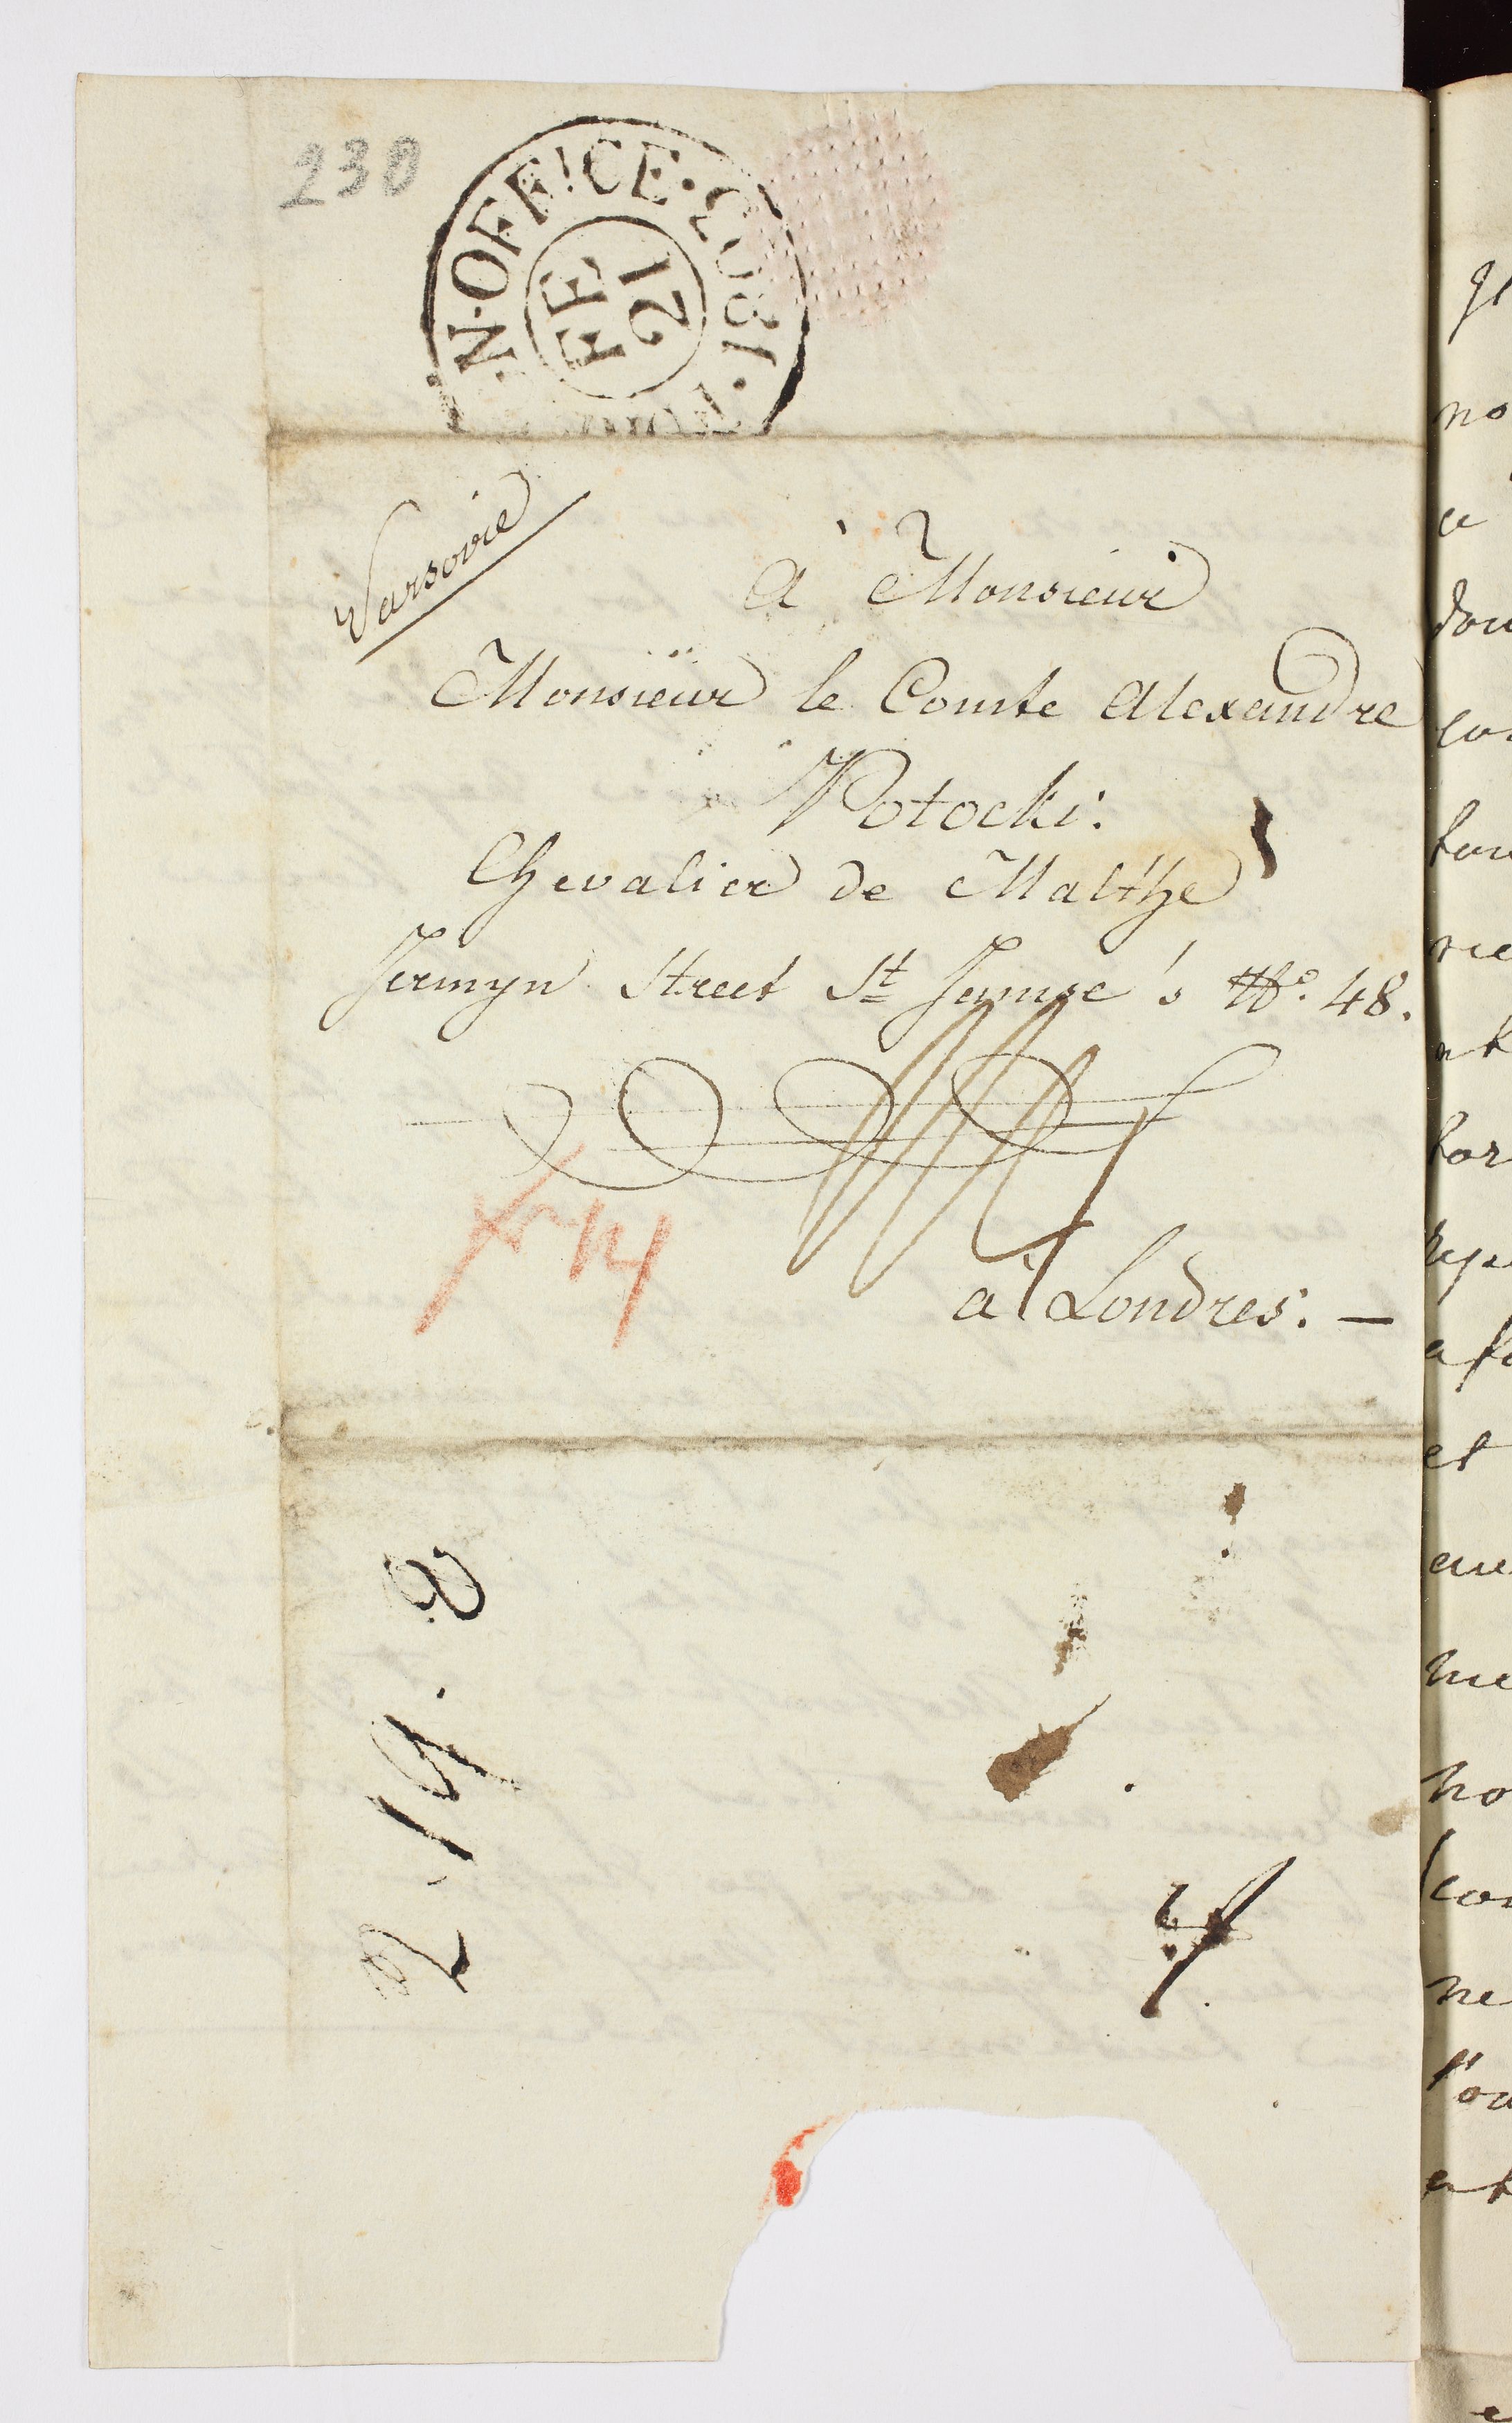 230
N·OFFICE·1803·
FE
21
Varsovie
à Monsieur
Monsieur le Comte Alexandre
Potocki:
Chevalier de Malthe
Jermyn Street St Jamse's No. 48.
à Londres. —
2. 19. 8
no
et